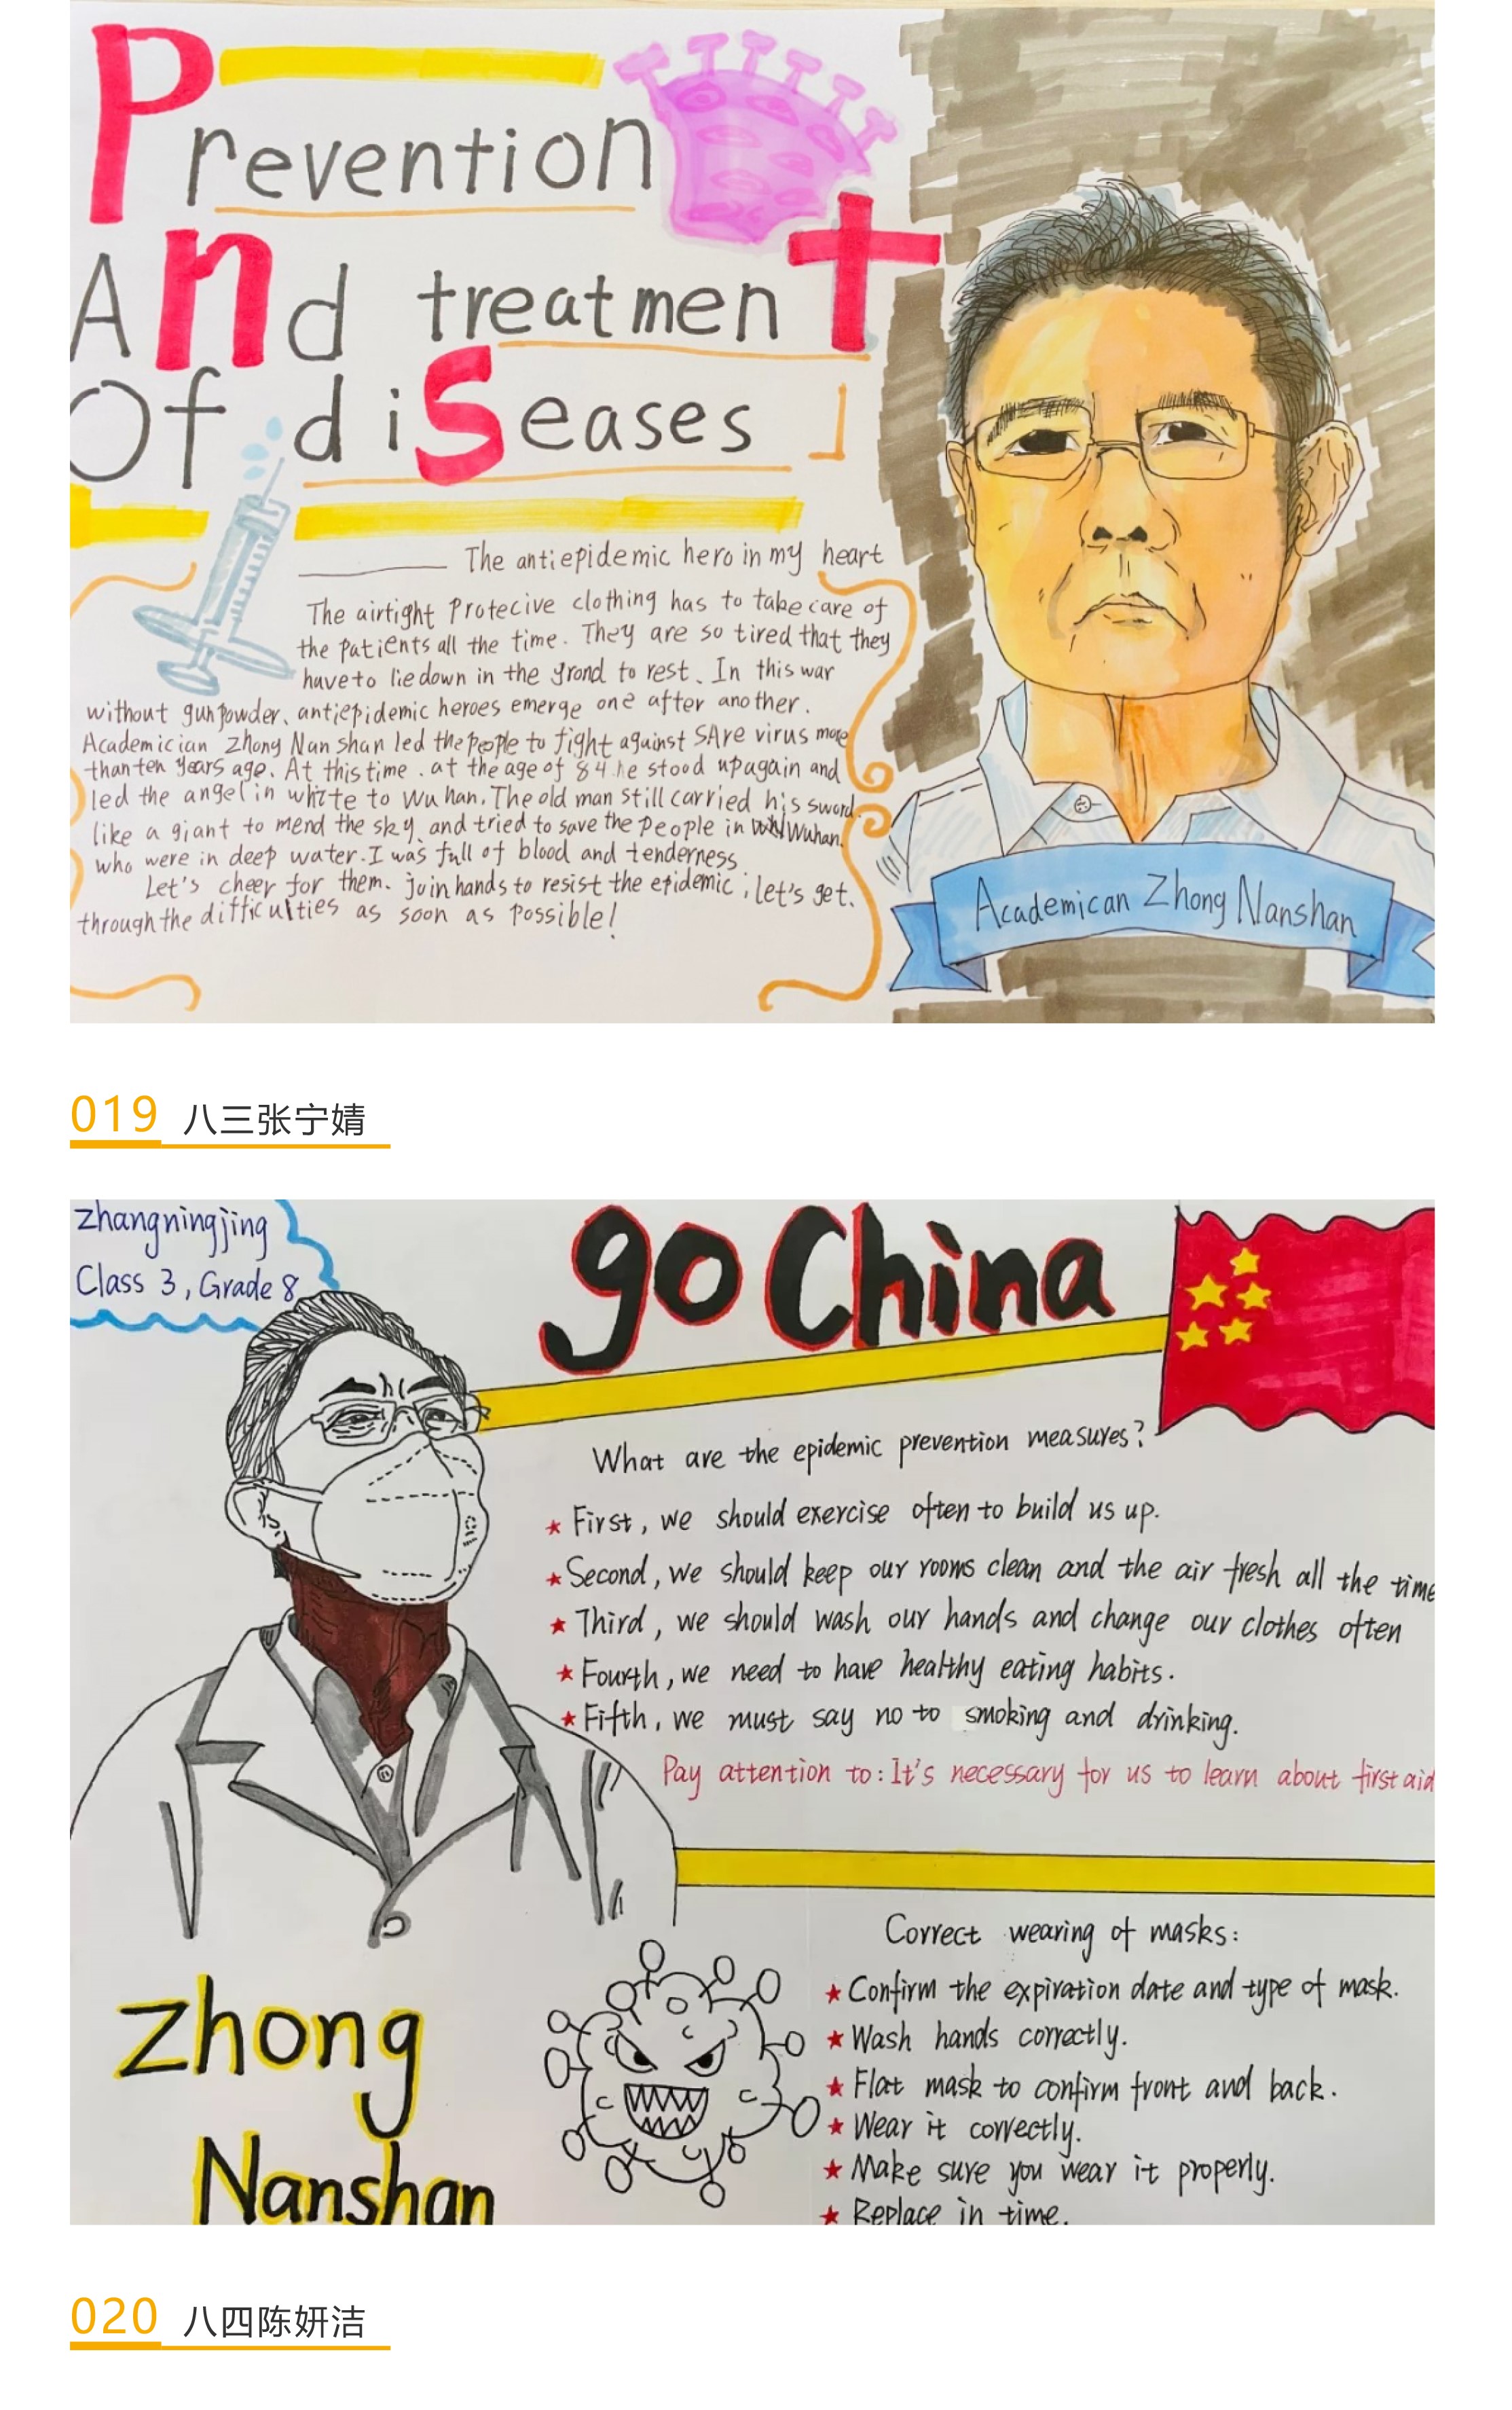 Prevention
And treatment
Of diseases
The antiepidemic hero in my heart
The airtight Protecive clothing has to take care of
the patients all the time. They are so tired that they
have to lie down in the grond to rest. In this war
without gunpowder, antiepidemic heroes emerge one after another.
Academician Zhong Nan shan led the people to fight against SAre virus more
than ten years age. At this time. at the age of 84.he stood up again and
led the angel in white to Wu han. The old man still carried his sword.
like a giant to mend the sky, and tried to save the people in Wuhan.
who were in deep water. I was full of blood and tenderness
Let's cheer for them. join hands to resist the epidemic; let's get.
through the difficulties as soon as possible!
Academican Zhong Nanshan
019 八三张宁婧
zhangningjing
Class 3, Grade 8
go China
What are the epidemic prevention measures?
★ First, we should exercise often to build us up.
★ Second, we should keep our rooms clean and the air fresh all the time
★ Third, we should wash our hands and change our clothes often
★ Fourth, we need to have healthy eating habits.
★ Fifth, we must say no to smoking and drinking.
Pay attention to: It's necessary for us to learn about first aid
Correct wearing of masks:
★ Confirm the expiration date and type of mask.
★ Wash hands correctly.
★ Flat mask to confirm front and back.
★ Wear it correctly.
★ Make sure you wear it properly.
★ Replace in time.
Zhong
Nanshan
020 八四陈妍洁